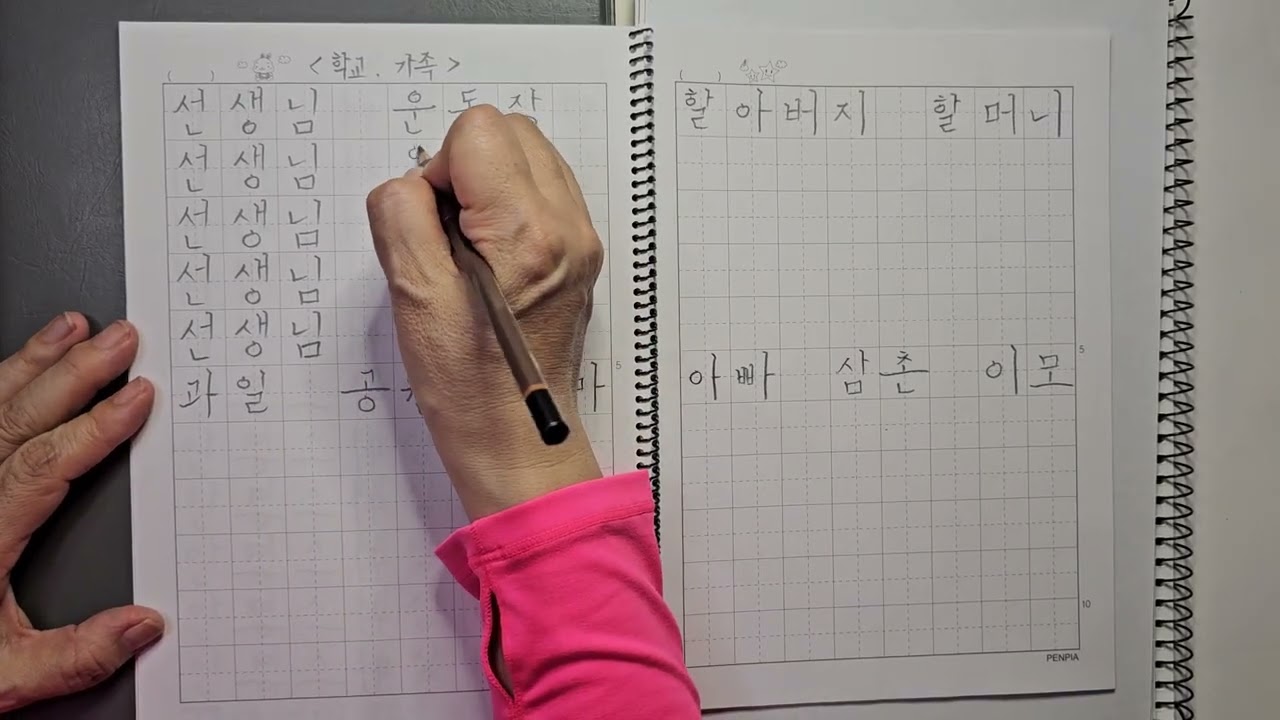 < 학교. 가족 >
선생님 운동장
선생님
선생님
선생님
선생님
과일 공
5
할아버지 할머니
아빠 삼촌 이모
5
10
PENPIA